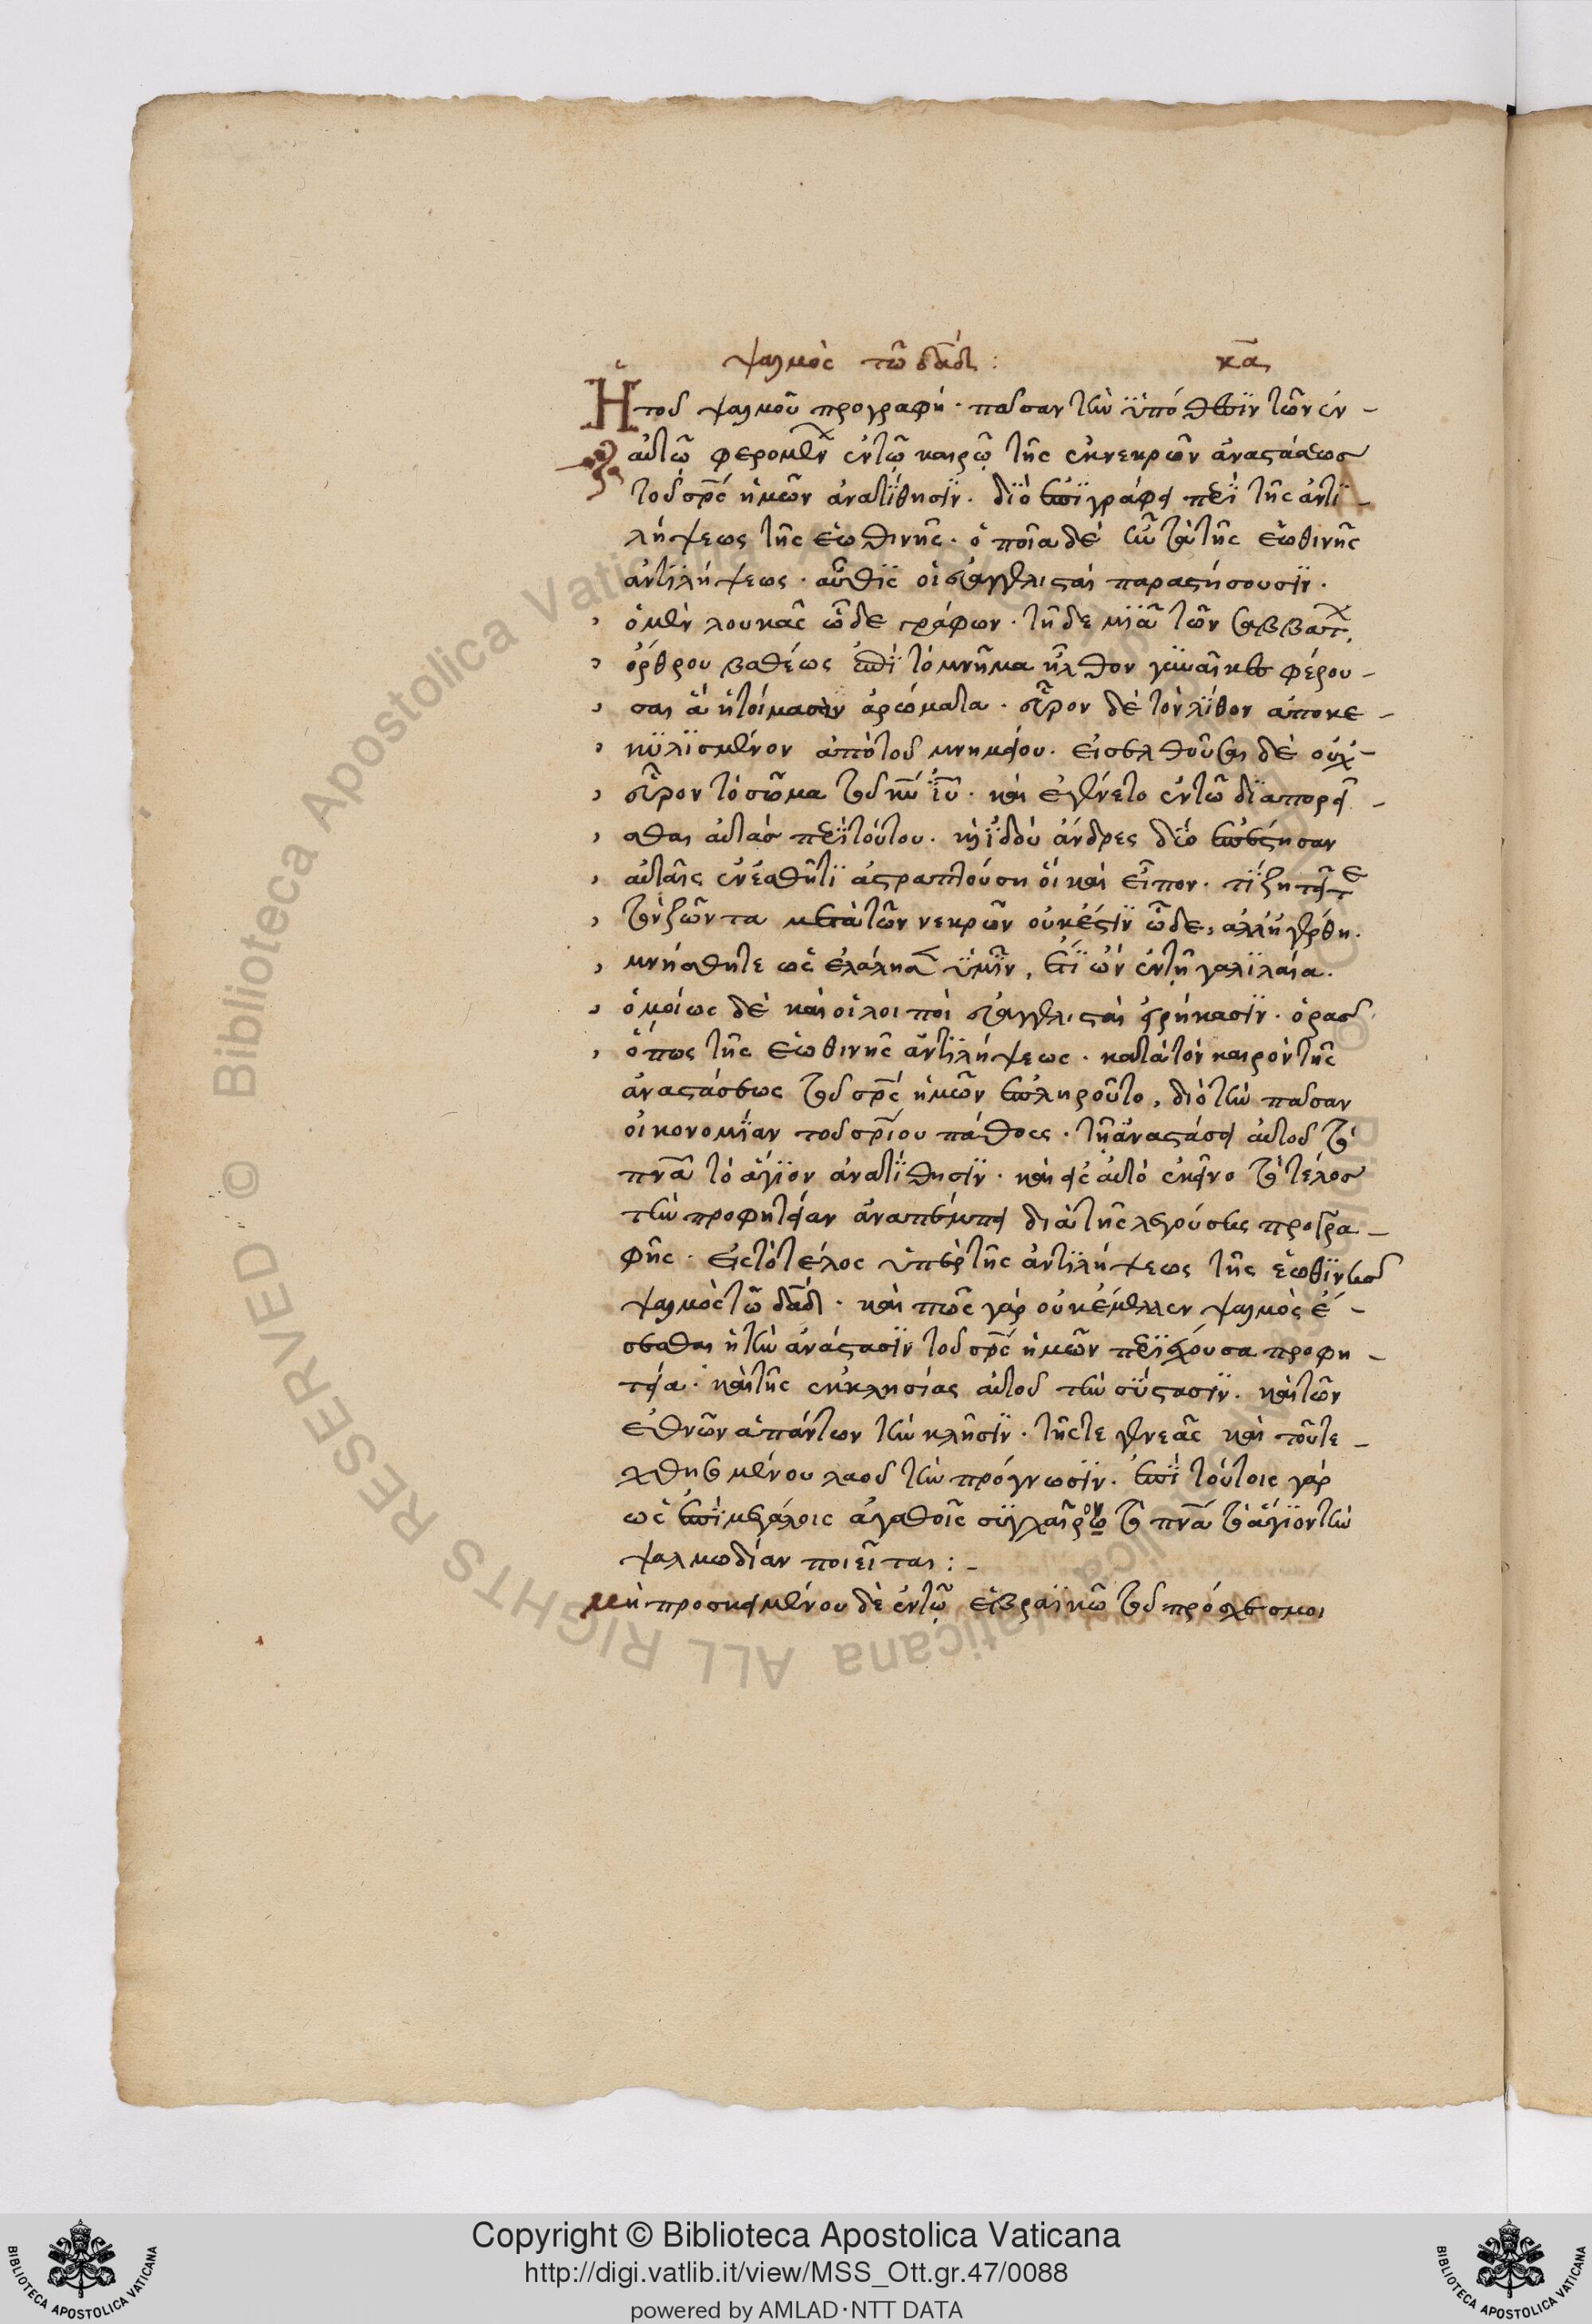 ψαλμὸς τῶ δᾱδ: κ̄α
Ἡ τοῦ ψαλμοῦ προγραφή· πᾶσαν τὴν ὑπόθεσϊν τῶν ἐν-
αὐτῶ φερομένων ἐντῶ καιρῶ τῆς ἐκνεκρῶν ἀναστάσεωσ
τοῦ σρ̄ς ἡμῶν ἀνατίθησϊν· διὸ ἐπϊγράφει περὶ τῆς ἀντι-
λήψεως τῆς ἑωθινῆς· ὁποῖα δὲ ἦν τὰ τῆς ἑωθινῆς
ἀντιλήψεως· αὖθϊς οἱ εὐαγγελισταὶ παραστήσουσϊν·
ὁ μὲν λουκᾶς ὧδε γράφων· τῆ δε μϊᾶ τῶν σαββάτων
ὄρθρου βαθέως ἐπὶ τὸ μνῆμα ἦλθον γυναῖκες φέρου-
σαι ἃ ἡτοίμασαν ἀρώματα· εὗρον δὲ τὸν λίθον ἀποκε-
κυλϊσμένον ἀπὸ τοῦ μνημείου· εἰσελθοῦσαι δὲ οὐχ-
εὗρον τὸ σῶμα τοῦ κ̄υ ῑυ· καὶ ἐγένετο ἐντῶ δϊαπορεῖ-
σθαι αὐτὰσ περὶ τούτου· κὴ ϊδοὺ ἄνδρες δύο ἐπέστησαν
αὐταῖς ἐν ἐσθῆτϊ ἀστραπτούση οἳ καὶ εἶπον· τί ζητεῖτε
τὸν ζῶντα μετὰ τῶν νεκρῶν οὐκ ἔστϊν ὧδε, ἀλλ' ἠγέρθη·
μνήσθητε ὡς ἐλάλησεν ὑμῖν, ἔτϊ ὢν ἐντῆ γαλϊλαία·
ὁμοίως δὲ καὶ οἱ λοιποὶ εὐαγγελισταὶ εἰρήκασϊν· ὁρᾶσ
ὅπως τῆς ἑωθινῆς ἀντιλήψεως· κατὰ τὸν καιρὸν τῆς
ἀναστάσεως τοῦ σρ̄ς ἡμῶν ἐπληροῦτο, διὸ τὴν πᾶσαν
οἰκονομϊαν τοῦ σρ̄ίου πάθους· τῆ ἀναστάσει αὐτοῦ τὸ
πν̄α τὸ ἅγϊον ἀνατίθησϊν· καὶ εἰς αὐτὸ ἐκεῖνο τὸ τέλοσ
τὴν προφητείαν ἀναπέμπει διὰ τῆς λεγούσης προγρα-
φῆς· εἰς τὸ τέλος ὑπὲρ τῆς ἀντιλήψεως τῆς ἑωθϊνῆσ
ψαλμὸς τῶ δᾱδ· καὶ πῶς γὰρ οὐκ ἔμελλεν ψαλμὸς ἔ-
σεσθαι ἡ τὴν ἀνάστασϊν τοῦ σρ̄ς ἡμῶν περϊέχουσα προφη-
τεία· καὶ τῆς ἐκκλησίας αὐτοῦ τὴν σύστασϊν· καὶ τῶν
ἐθνῶν ἁπάντων τὴν κλῆσϊν· τῆς τε γενεᾶς καὶ τοῦ τε-
χθησομένου λαοῦ τὴν πρόγνωσϊν· ἐπὶ τούτοις γὰρ
ὡς ἐπὶ μεγάλοις ἀγαθοῖς συγχαῖρον τὸ πν̄α τὸ ἅγϊον τὴν
ψαλμωδίαν ποιεῖται:-
μὴ προσκειμένου δὲ ἐντῶ ἑβραϊκῶ τοῦ πρόσχεσμοι
Copyright © Biblioteca Apostolica Vaticana
http://digi.vatlib.it/view/MSS_Ott.gr.47/0088
powered by AMLAD·NTT DATA